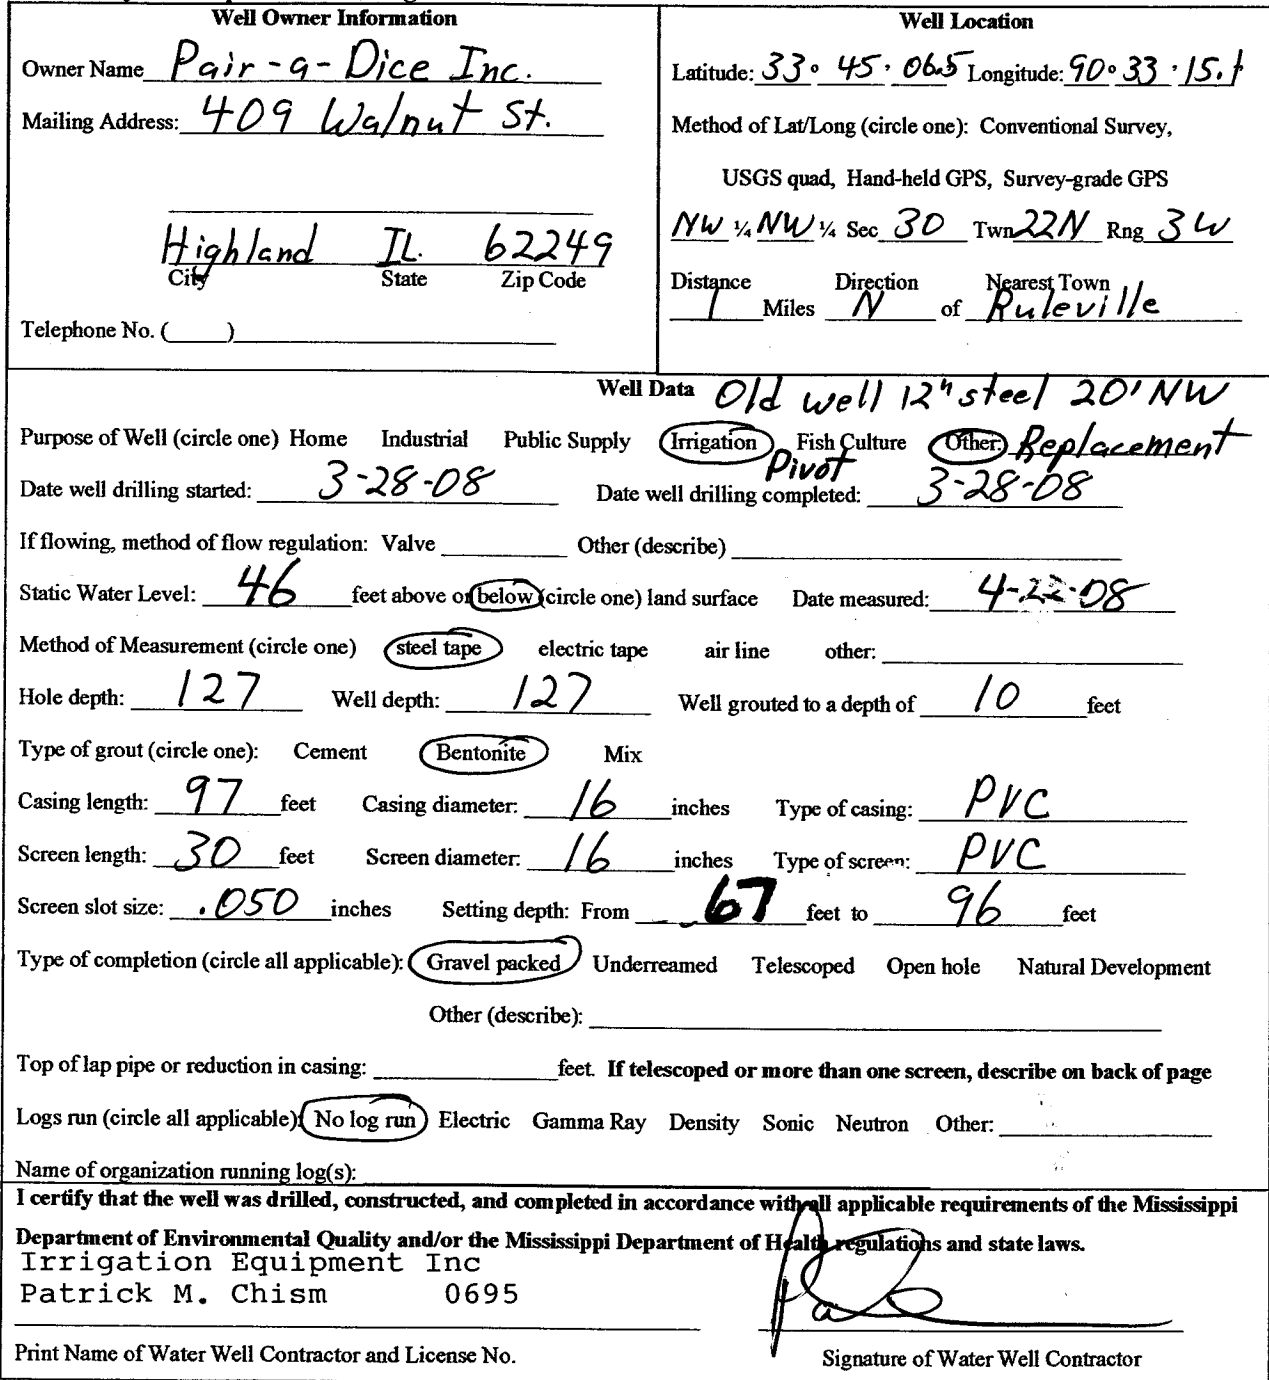 Well Owner Information
Owner Name Pair-a-Dice Inc.
Mailing Address: 409 Walnut St.
Highland IL. 62249
City State Zip Code
Telephone No. (____)
Well Location
Latitude: 33° 45' 06.5 Longitude: 90° 33' 15.1
Method of Lat/Long (circle one): Conventional Survey,
USGS quad, Hand-held GPS, Survey-grade GPS
NW ¼ NW ¼ Sec 30 Twn 22N Rng 3W
Distance Direction Nearest Town
1 Miles N of Ruleville
Well Data Old well 12" steel 20' NW
Purpose of Well (circle one) Home Industrial Public Supply Irrigation Fish Culture Other: Replacement
Pivot
Date well drilling started: 3-28-08 Date well drilling completed: 3-28-08
If flowing, method of flow regulation: Valve ____ Other (describe) ____
Static Water Level: 46 feet above or below (circle one) land surface Date measured: 4-22-08
Method of Measurement (circle one) steel tape electric tape air line other: ____
Hole depth: 127 Well depth: 127 Well grouted to a depth of 10 feet
Type of grout (circle one): Cement Bentonite Mix
Casing length: 97 feet Casing diameter: 16 inches Type of casing: PVC
Screen length: 30 feet Screen diameter: 16 inches Type of screen: PVC
Screen slot size: .050 inches Setting depth: From 67 feet to 96 feet
Type of completion (circle all applicable): Gravel packed Underreamed Telescoped Open hole Natural Development
Other (describe): ____
Top of lap pipe or reduction in casing: ____ feet. If telescoped or more than one screen, describe on back of page
Logs run (circle all applicable): No log run Electric Gamma Ray Density Sonic Neutron Other: ____
Name of organization running log(s):
I certify that the well was drilled, constructed, and completed in accordance with all applicable requirements of the Mississippi
Department of Environmental Quality and/or the Mississippi Department of Health regulations and state laws.
Irrigation Equipment Inc
Patrick M. Chism 0695
Print Name of Water Well Contractor and License No.
Signature of Water Well Contractor